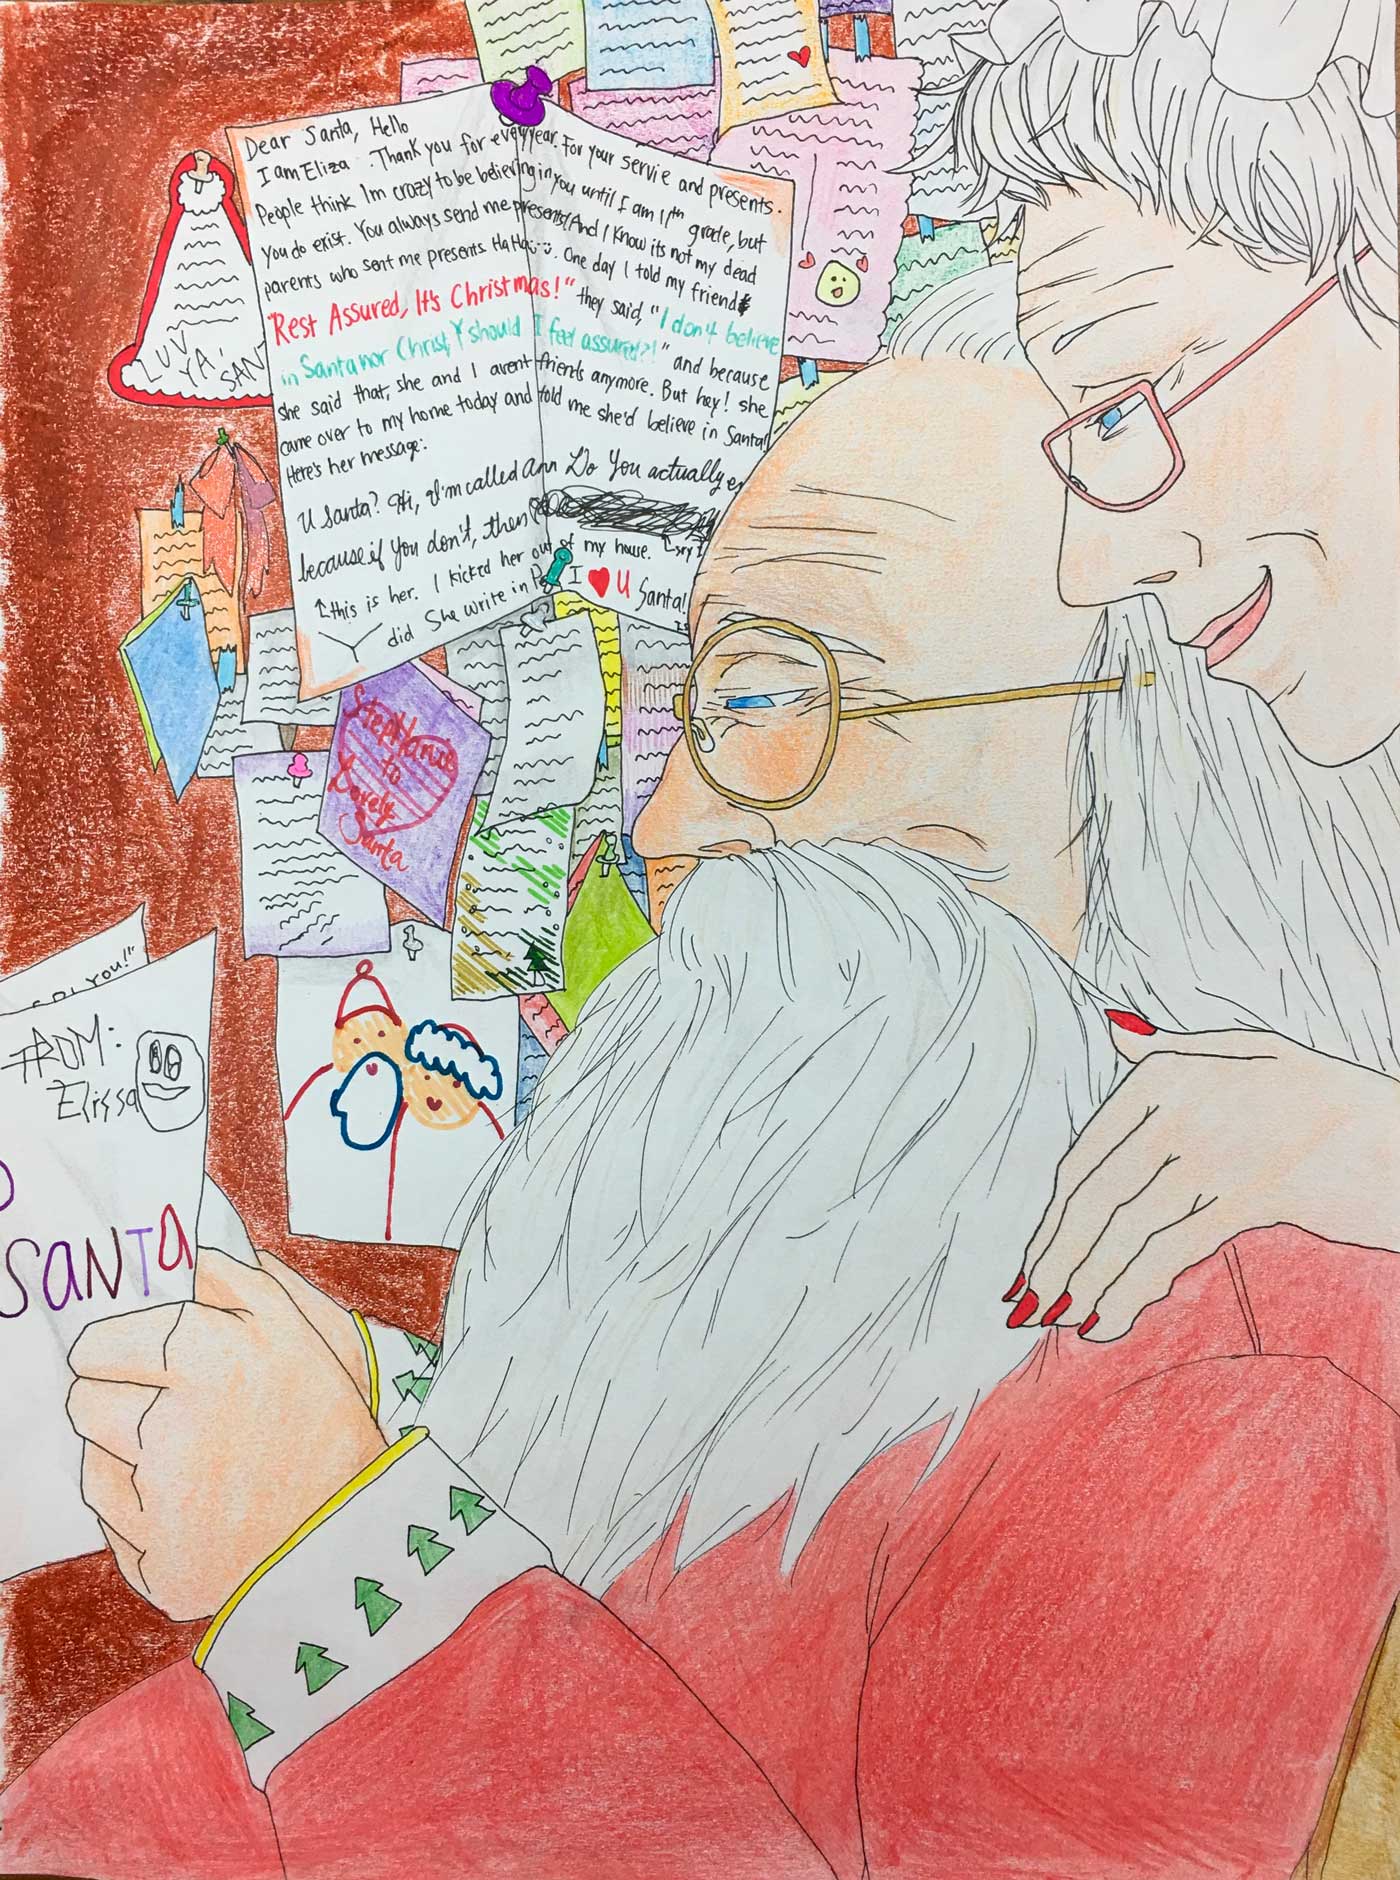 Dear Santa, Hello
I am Eliza. Thank you for every year. For your servie and presents.
People think I'm crazy to be believing in you until I am 11th grade, but
you do exist. You always send me presents! And I know its not my dead
parents who sent me presents Ha Ha :-). One day I told my friend
"Rest Assured, It's Christmas!" they said, "I don't believe
in Santa nor Christ, Y should I feel assured?!" and because
she said that, she and I arent friends anymore. But hey! she
came over to my home today and told me she'd believe in Santa!
Here's her message:
U Santa? Hi, I'm called Ann Do You actually ex
because if You don't, then
↑this is her. I kicked her out of my house. sry I
did She write in Pe
I ♥ U Santa!
LUV
YA,
SANT
Stephanie
to
Lovely
Santa
YOU!"
FROM:
Elissa
SANTA